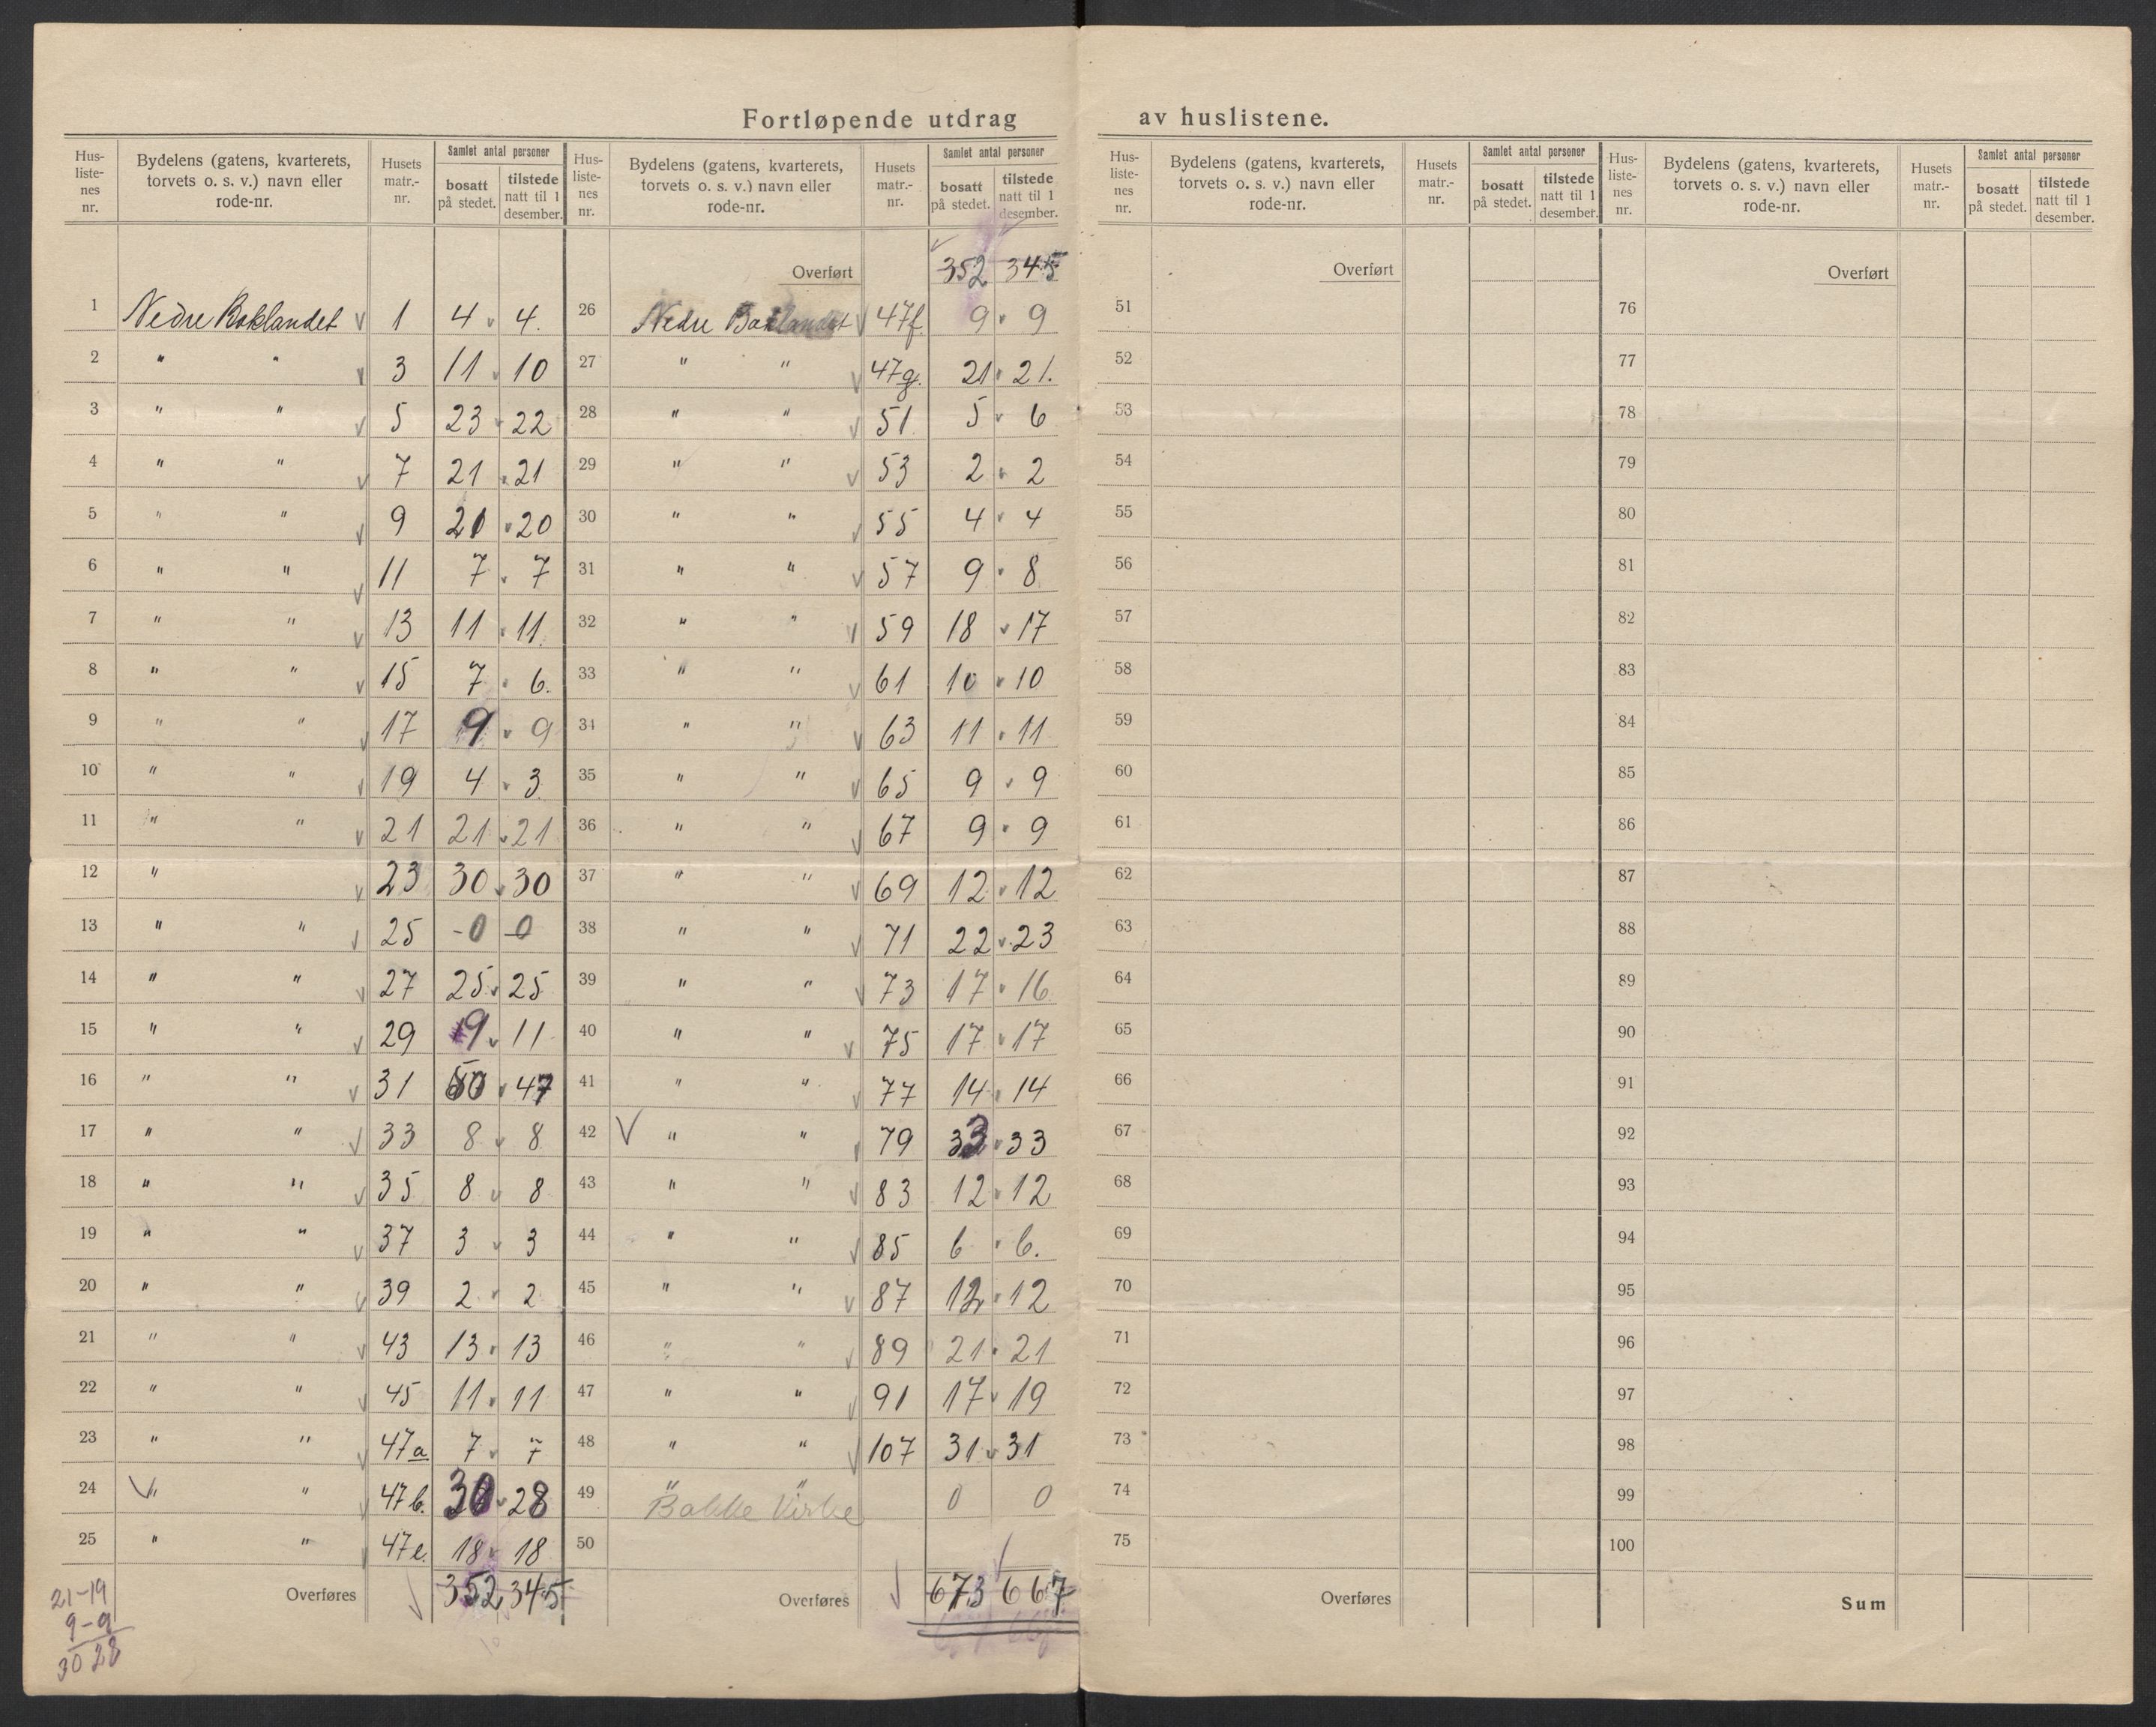 Fortløpende utdrag av huslistene.
Hus-liste-nes nr. | Bydelens (gatens, kvarterets, torvets o. s. v.) navn eller rode-nr. | Husets matr.-nr. | Samlet antal personer bosatt på stedet. | tilstede natt til 1 desember.
1 Nedre Baklandet v 1 4 v 4.
2 " " v 3 11 v 10
3 " " v 5 23 v 22
4 " " v 7 21 v 21
5 " " v 9 20 v 20
6 " " v 11 7 v 7
7 " " v 13 11 v 11.
8 " " v 15 7 v 6.
9 " " v 17 9 v 9
10 " " v 19 4 v 3
11 " " v 21 21 v 21
12 " v 23 30 v 30
13 " " v 25 - 0 - 0
14 " " v 27 25 v 25
15 " " v 29 9 v 11
16 " " v 31 50 v 47
17 " " v 33 8 v 8
18 " " v 35 8 v 8
19 " " v 37 3 v 3
20 " " v 39 2 v 2
21 " " v 43 13 v 13
22 " " v 45 11 v 11
23 " " v 47a 7 v 7
24 V " " v 47b. 30 v 28
25 " " v 47e. 18 v 18
Overføres 352 345
21-19
9-9
30 28
Hus-liste-nes nr. | Bydelens (gatens, kvarterets, torvets o. s. v.) navn eller rode-nr. | Husets matr.-nr. | Samlet antal personer bosatt på stedet. | tilstede natt til 1 desember.
Overført 352 345
26 Nedre Baklandet v 47f. 9 v 9
27 " " v 47g. 21 v 21.
28 " " v 51 5 v 6
29 " " v 53 2 v 2
30 " " v 55 4 v 4
31 " " v 57 9 v 8
32 " " v 59 18 v 17
33 " " v 61 10 v 10
34 " " v 63 11 v 11
35 " " v 65 9 v 9
36 " " v 67 9 v 9
37 " " v 69 12 v 12
38 " " v 71 22 v 23
39 " " v 73 17 v 16
40 " " v 75 17 v 17
41 " " v 77 14 v 14
42 V " " v 79 33 v 33
43 " " v 83 12 v 12
44 " " v 85 6 v 6.
45 " " v 87 12 v 12
46 " " v 89 21 v 21
47 " " v 91 17 v 19
48 " " v 107 31 v 31
49 " " Bakke Kirke 0 0
50
Overføres 673 667
Hus-liste-nes nr. | Bydelens (gatens, kvarterets, torvets o. s. v.) navn eller rode-nr. | Husets matr.-nr. | Samlet antal personer bosatt på stedet. | tilstede natt til 1 desember.
Overført
51
52
53
54
55
56
57
58
59
60
61
62
63
64
65
66
67
68
69
70
71
72
73
74
75
Overføres
Hus-liste-nes nr. | Bydelens (gatens, kvarterets, torvets o. s. v.) navn eller rode-nr. | Husets matr.-nr. | Samlet antal personer bosatt på stedet. | tilstede natt til 1 desember.
Overført
76
77
78
79
80
81
82
83
84
85
86
87
88
89
90
91
92
93
94
95
96
97
98
99
100
Sum